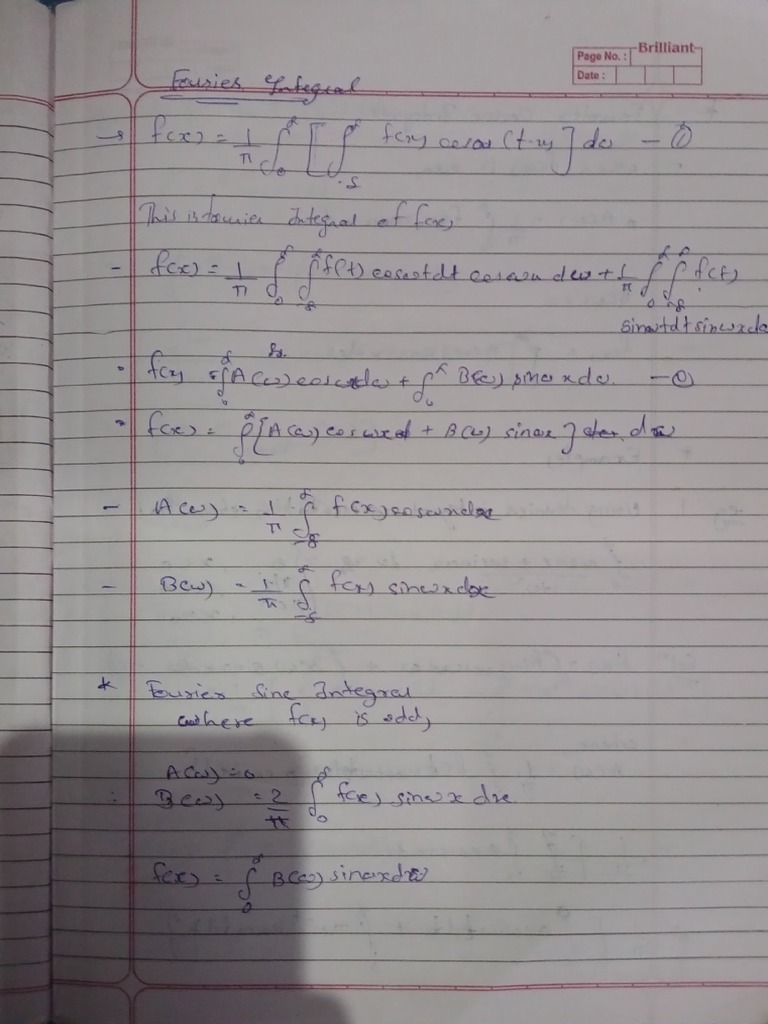 Brilliant
Page No. :
Date :
Fourier Integral
→ f(x) = 1/π ∫₀^∞ [ ∫₋∞^∞ f(x) cosω (t-x) ] dω — ①
This is fourier Integral of f(x)
- f(x) = 1/π ∫₀^∞ ∫₋∞^∞ f(t) cosωt dt cosωx dω + 1/π ∫₀^∞ ∫₋∞^∞ f(t)
sinωt dt sinωx dω
• f(x) = ∫₀^∞ A(ω) cosωx dω + ∫₀^∞ B(ω) sinωx dω. — ②
• f(x) = ∫₀^∞ [A(ω) cosωx + B(ω) sinωx ] dω
- A(ω) = 1/π ∫₋∞^∞ f(x) cosωx dx
- B(ω) = 1/π ∫₋∞^∞ f(x) sinωx dx
* Fourier Sine Integral
where f(x) is odd,
A(ω) = 0
: B(ω) = 2/π ∫₀^∞ f(x) sinωx dx
f(x) = ∫₀^∞ B(ω) sinωx dω